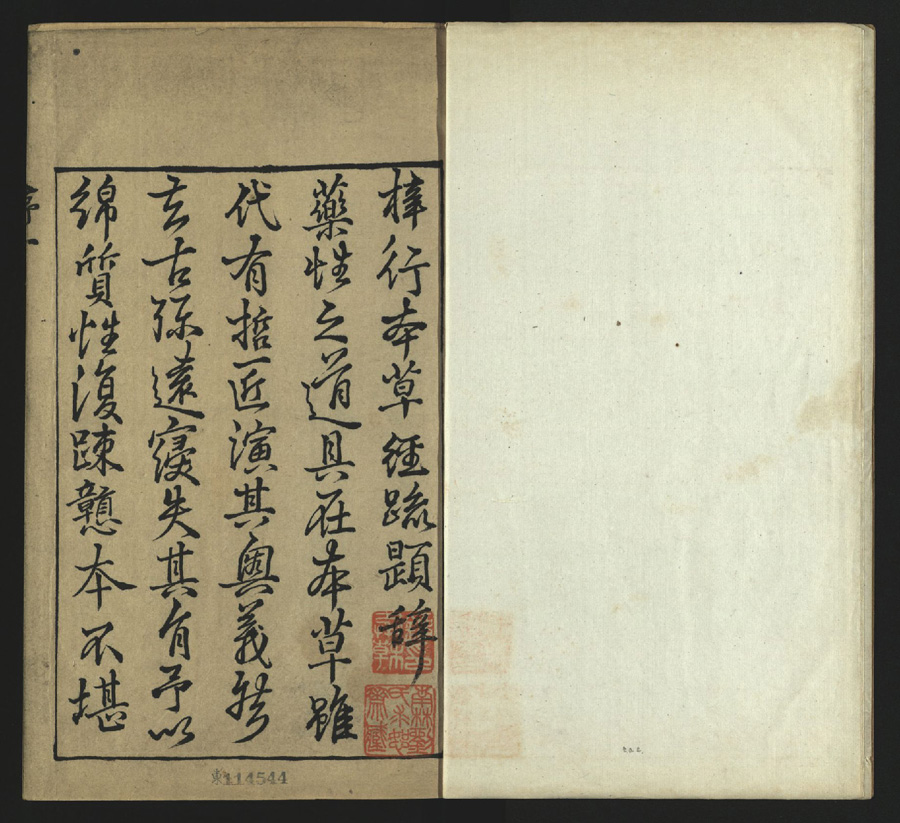 梓行本草經疏題辭
藥性之道具在本草雖
代有哲匠演其奧義然
去古彌遠寖失其旨予以
綿質性復踈戇本不堪
序一
東114544